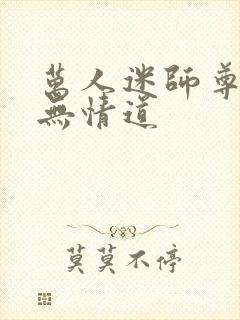 萬人迷師尊
無情道
莫莫不停